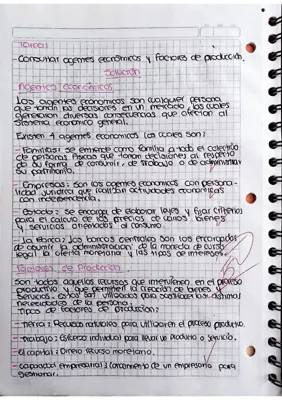 Tarea
-Consultar agentes económicos y factores de producción.
Solución
Agentes económicos
Los agentes económicos son cualquier persona
que toman las decisiones en un mercado, las cuales
generan diversas consecuencias que afectan al
sistema económico general.
Existen 4 agentes económicos los cuales son:
-Familias: se entiende como familia a todo el colectivo
de personas físicas que toman decisiones al respecto
de su forma de consumir, de trabajo o de administrar
su patrimonio.
-Empresas: Son los agentes económicos con persona-
lidad jurídica que realizan actividades económicas
con independencia.
-Estado: Se encarga de elaborar leyes y fijar criterios
para el cálculo de los precios de varios bienes
y servicios orientados al consumo.
-La Banca: los bancos centrales son los encargados
de asumir la administración de la moneda de curso
legal, la oferta monetaria y las tipos de intereses.
Factores de Producción
Son todos aquellos recursos que intervienen en el proceso
productivo y que permiten la creación de bienes y
servicios. estos son utilizados para satisfacer las distintas
necesidades de la persona.
Tipos de factores de producción:
-Tierra: Recursos naturales para utilizar en el proceso productivo.
-Trabajo: Esfuerzo individual para llevar un producto o servicio.
-El capital: Dinero recurso monetario.
-capacidad empresarial: conocimiento de un empresario para
gestionar.